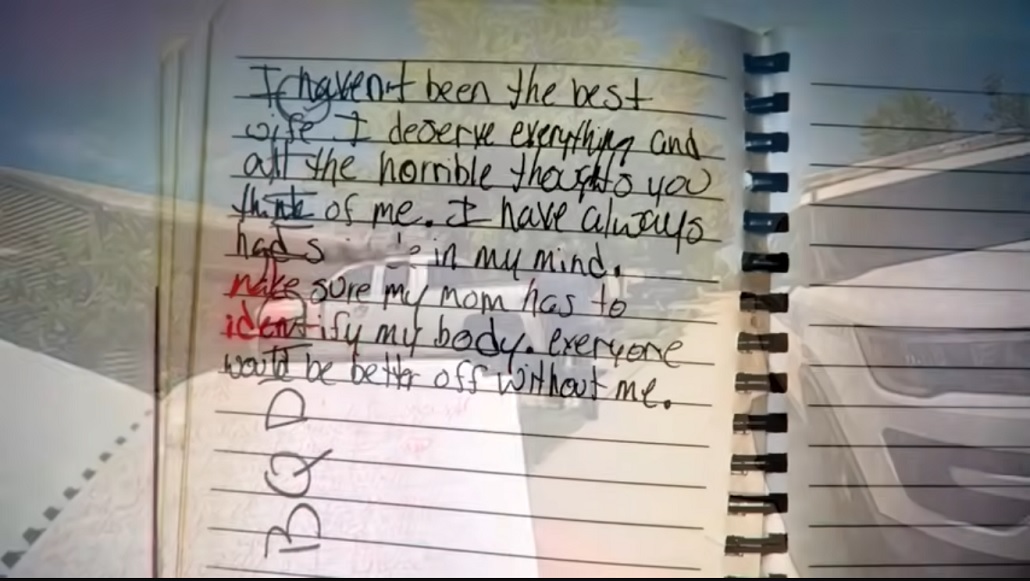 I haven't been the best
wife. I deserve everything and
all the horrible thoughts you
think of me. I have always
had in my mind.
make sure my mom has to
identify my body. everyone
would be better off without me.
BQD